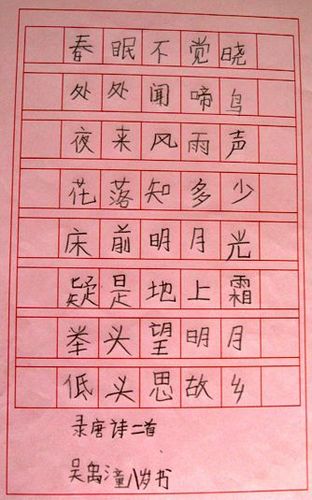 春眠不觉晓
处处闻啼鸟
夜来风雨声
花落知多少
床前明月光
疑是地上霜
举头望明月
低头思故乡
录唐诗二首
吴禹潼八岁书